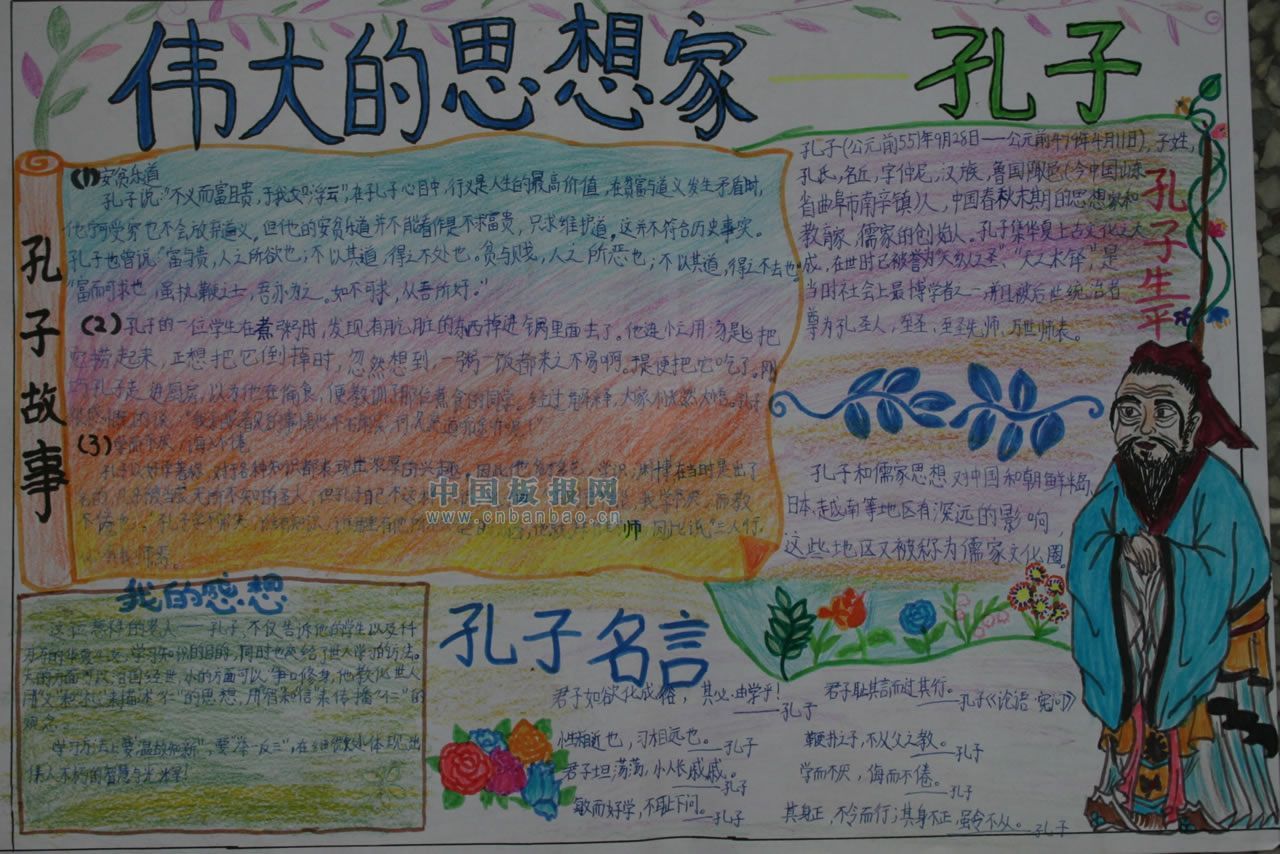 伟大的思想家——孔子
孔子故事
(1)安贫乐道
孔子说:“不义而富且贵,于我如浮云”,在孔子心目中,行义是人生的最高价值,在贫富与道义发生矛盾时,
他宁可受穷也不会放弃道义。但他的安贫乐道并不能看作是不求富贵,只求维护道,这并不符合历史事实。
孔子也曾说:“富与贵,人之所欲也;不以其道,得之不处也。贫与贱,人之所恶也;不以其道,得之不去也。”
“富而可求也,虽执鞭之士,吾亦为之。如不可求,从吾所好。”
(2)孔子的一位学生在煮粥时,发现有肮脏的东西掉进锅里面去了。他连忙用汤匙把
它捞起来,正想把它倒掉时,忽然想到,一粥一饭都来之不易啊。于是便把它吃了。刚
巧孔子走进厨房,以为他在偷食,便教训了那位煮食的同学。经过解释,大家才恍然大悟。孔子
(3)学而不厌,诲人不倦
孔子以好学著称,对于各种知识都表现出浓厚的兴趣,因此他多才多艺,学识渊博,在当时是出了
师 因此说“三人行,
孔子生平
孔子(公元前551年9月28日——公元前479年4月11日),子姓,
孔氏,名丘,字仲尼,汉族,鲁国陬邑(今中国山东
省曲阜市南辛镇)人,中国春秋末期的思想家和
教育家,儒家的创始人。孔子集华夏上古文化之大
成,在世时已被誉为“天纵之圣”、“天之木铎”,是
当时社会上最博学者之一,并且被后世统治者
尊为孔圣人,至圣,至圣先师,万世师表。
孔子和儒家思想对中国和朝鲜半岛,
日本,越南等地区有深远的影响,
这些地区又被称为儒家文化圈。
中国板报网
www.cnbanbao.cn
我的感想
这位慈祥的老人——孔子,不仅告诉他的学生以及所
有的华夏子孙学习知识的目的,同时也交给了世人学习的方法。
大的方面可以治国经世,小的方面可以
的思想,用智和信来传播“仁”的
观念。
学习方法上要“温故知新”,要“举一反三”,在细微小体现出
伟人不朽的智慧与光辉!
孔子名言
君子如欲化成俗,其必由学乎!——孔子
性相近也,习相远也。——孔子
君子坦荡荡,小人长戚戚。——孔子
敏而好学,不耻下问。——孔子
君子耻其言而过其行。——孔子《论语·宪问》
鞭扑之子,不从父之教。——孔子
学而不厌,诲而不倦。——孔子
其身正,不令而行;其身不正,虽令不从。——孔子